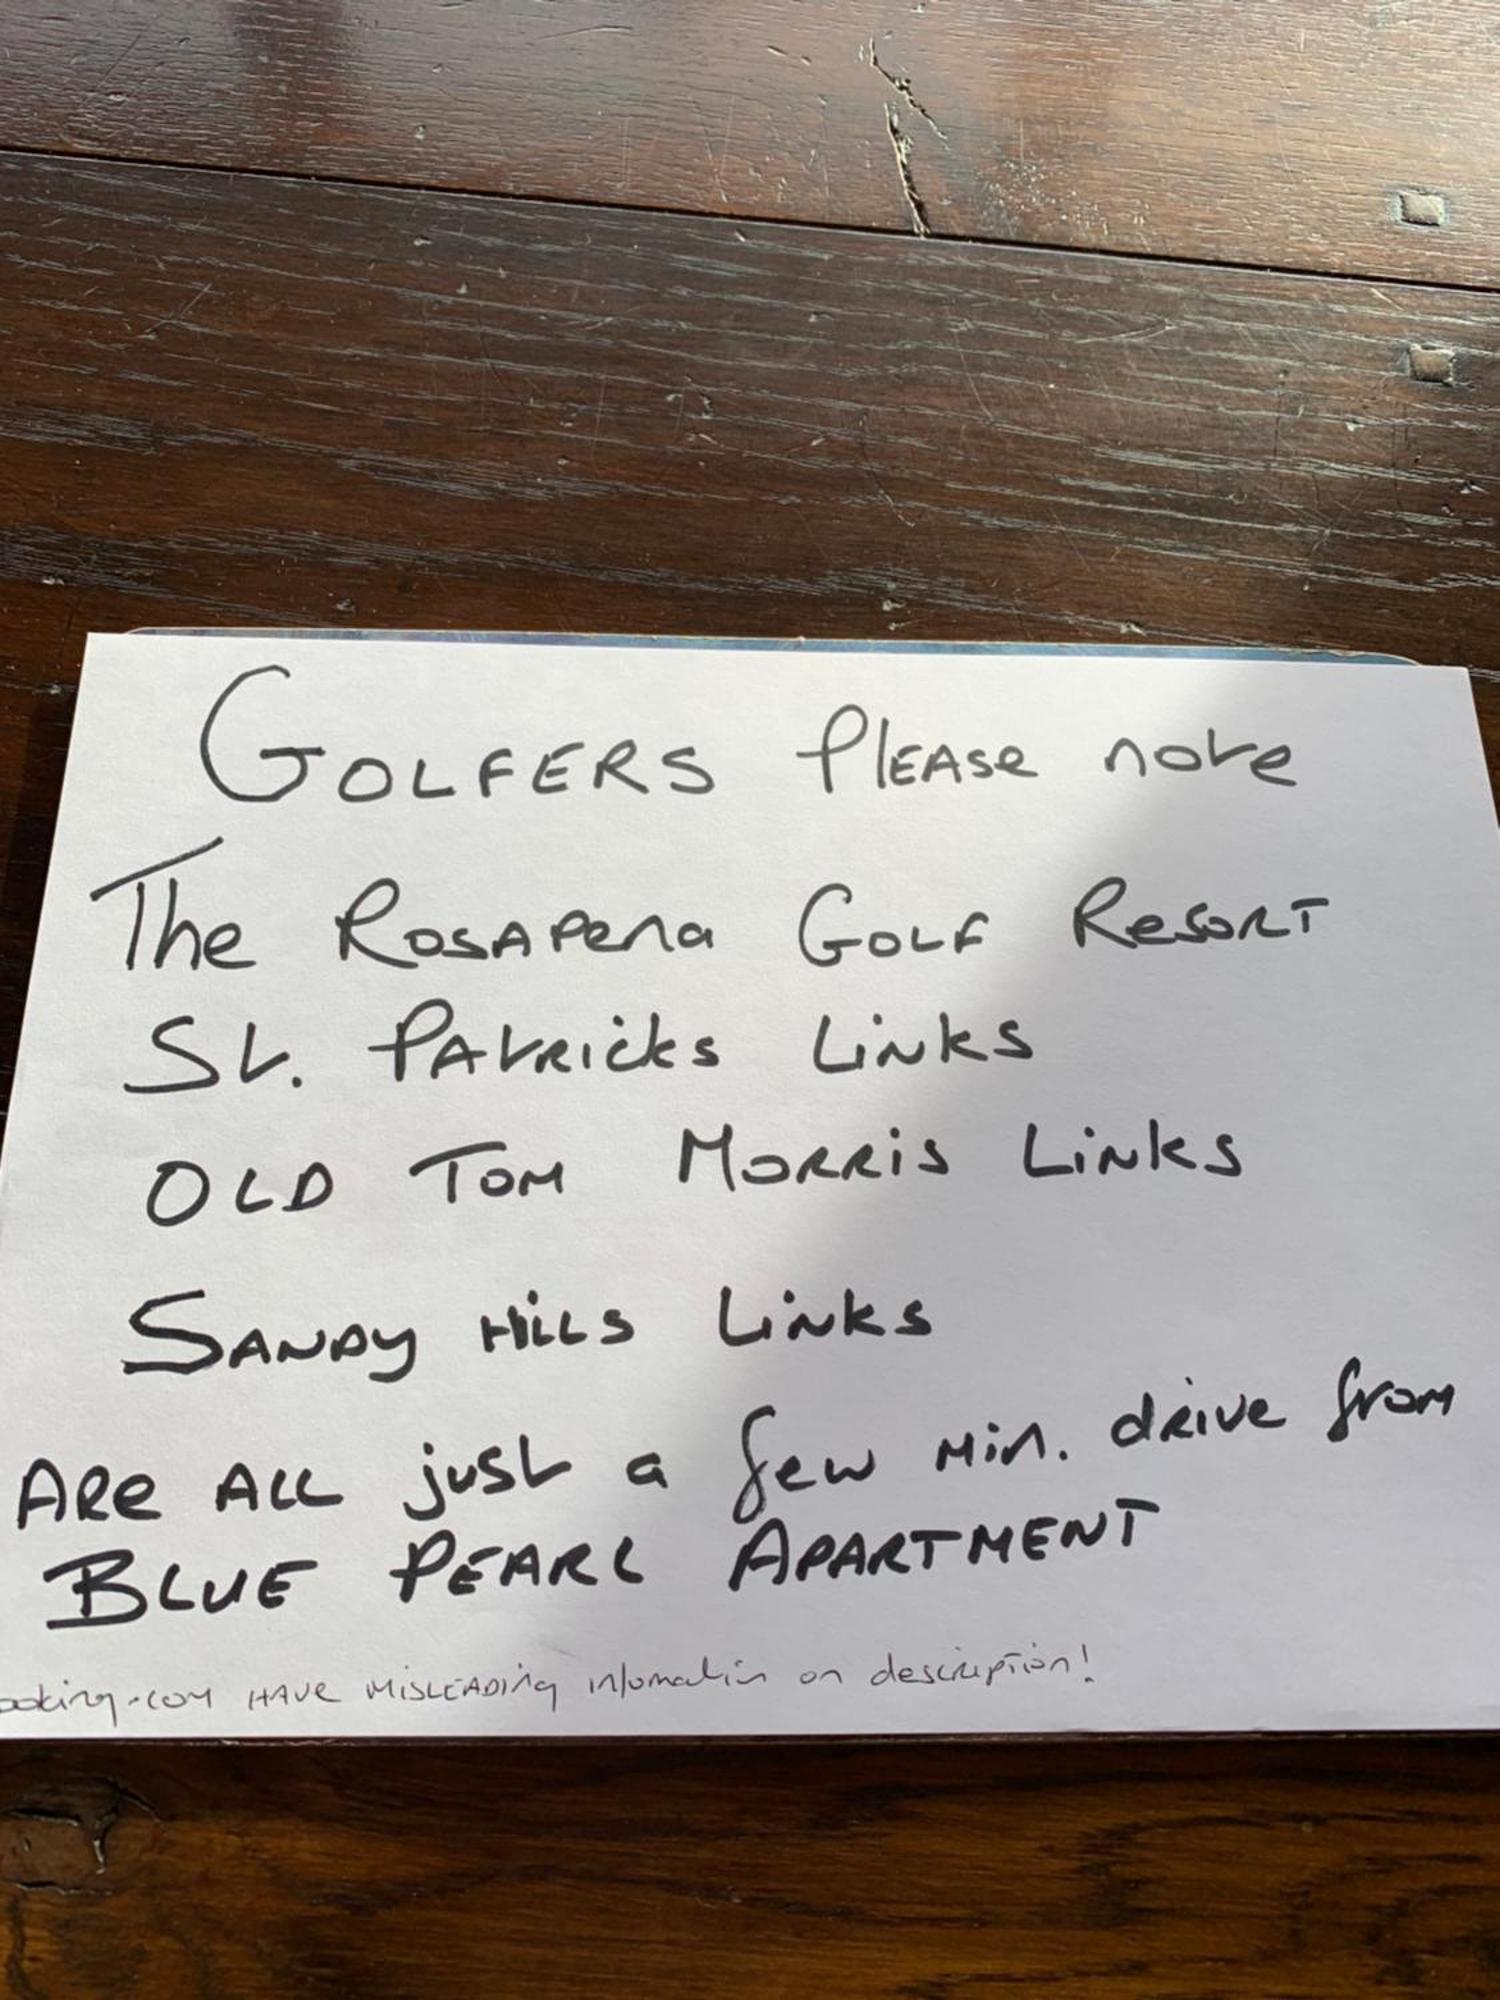 GOLFERS PLEASe note
The ROSAPena GOLF ResORT
St. PAtRicks Links
OLD TOM MORRiS Links
SANDy HiLLS Links
ARe ALL just a few Min. dRive from
BLUE PEARL APARTMENT
ooking.com HAVE MISLEADING infomatin on description!